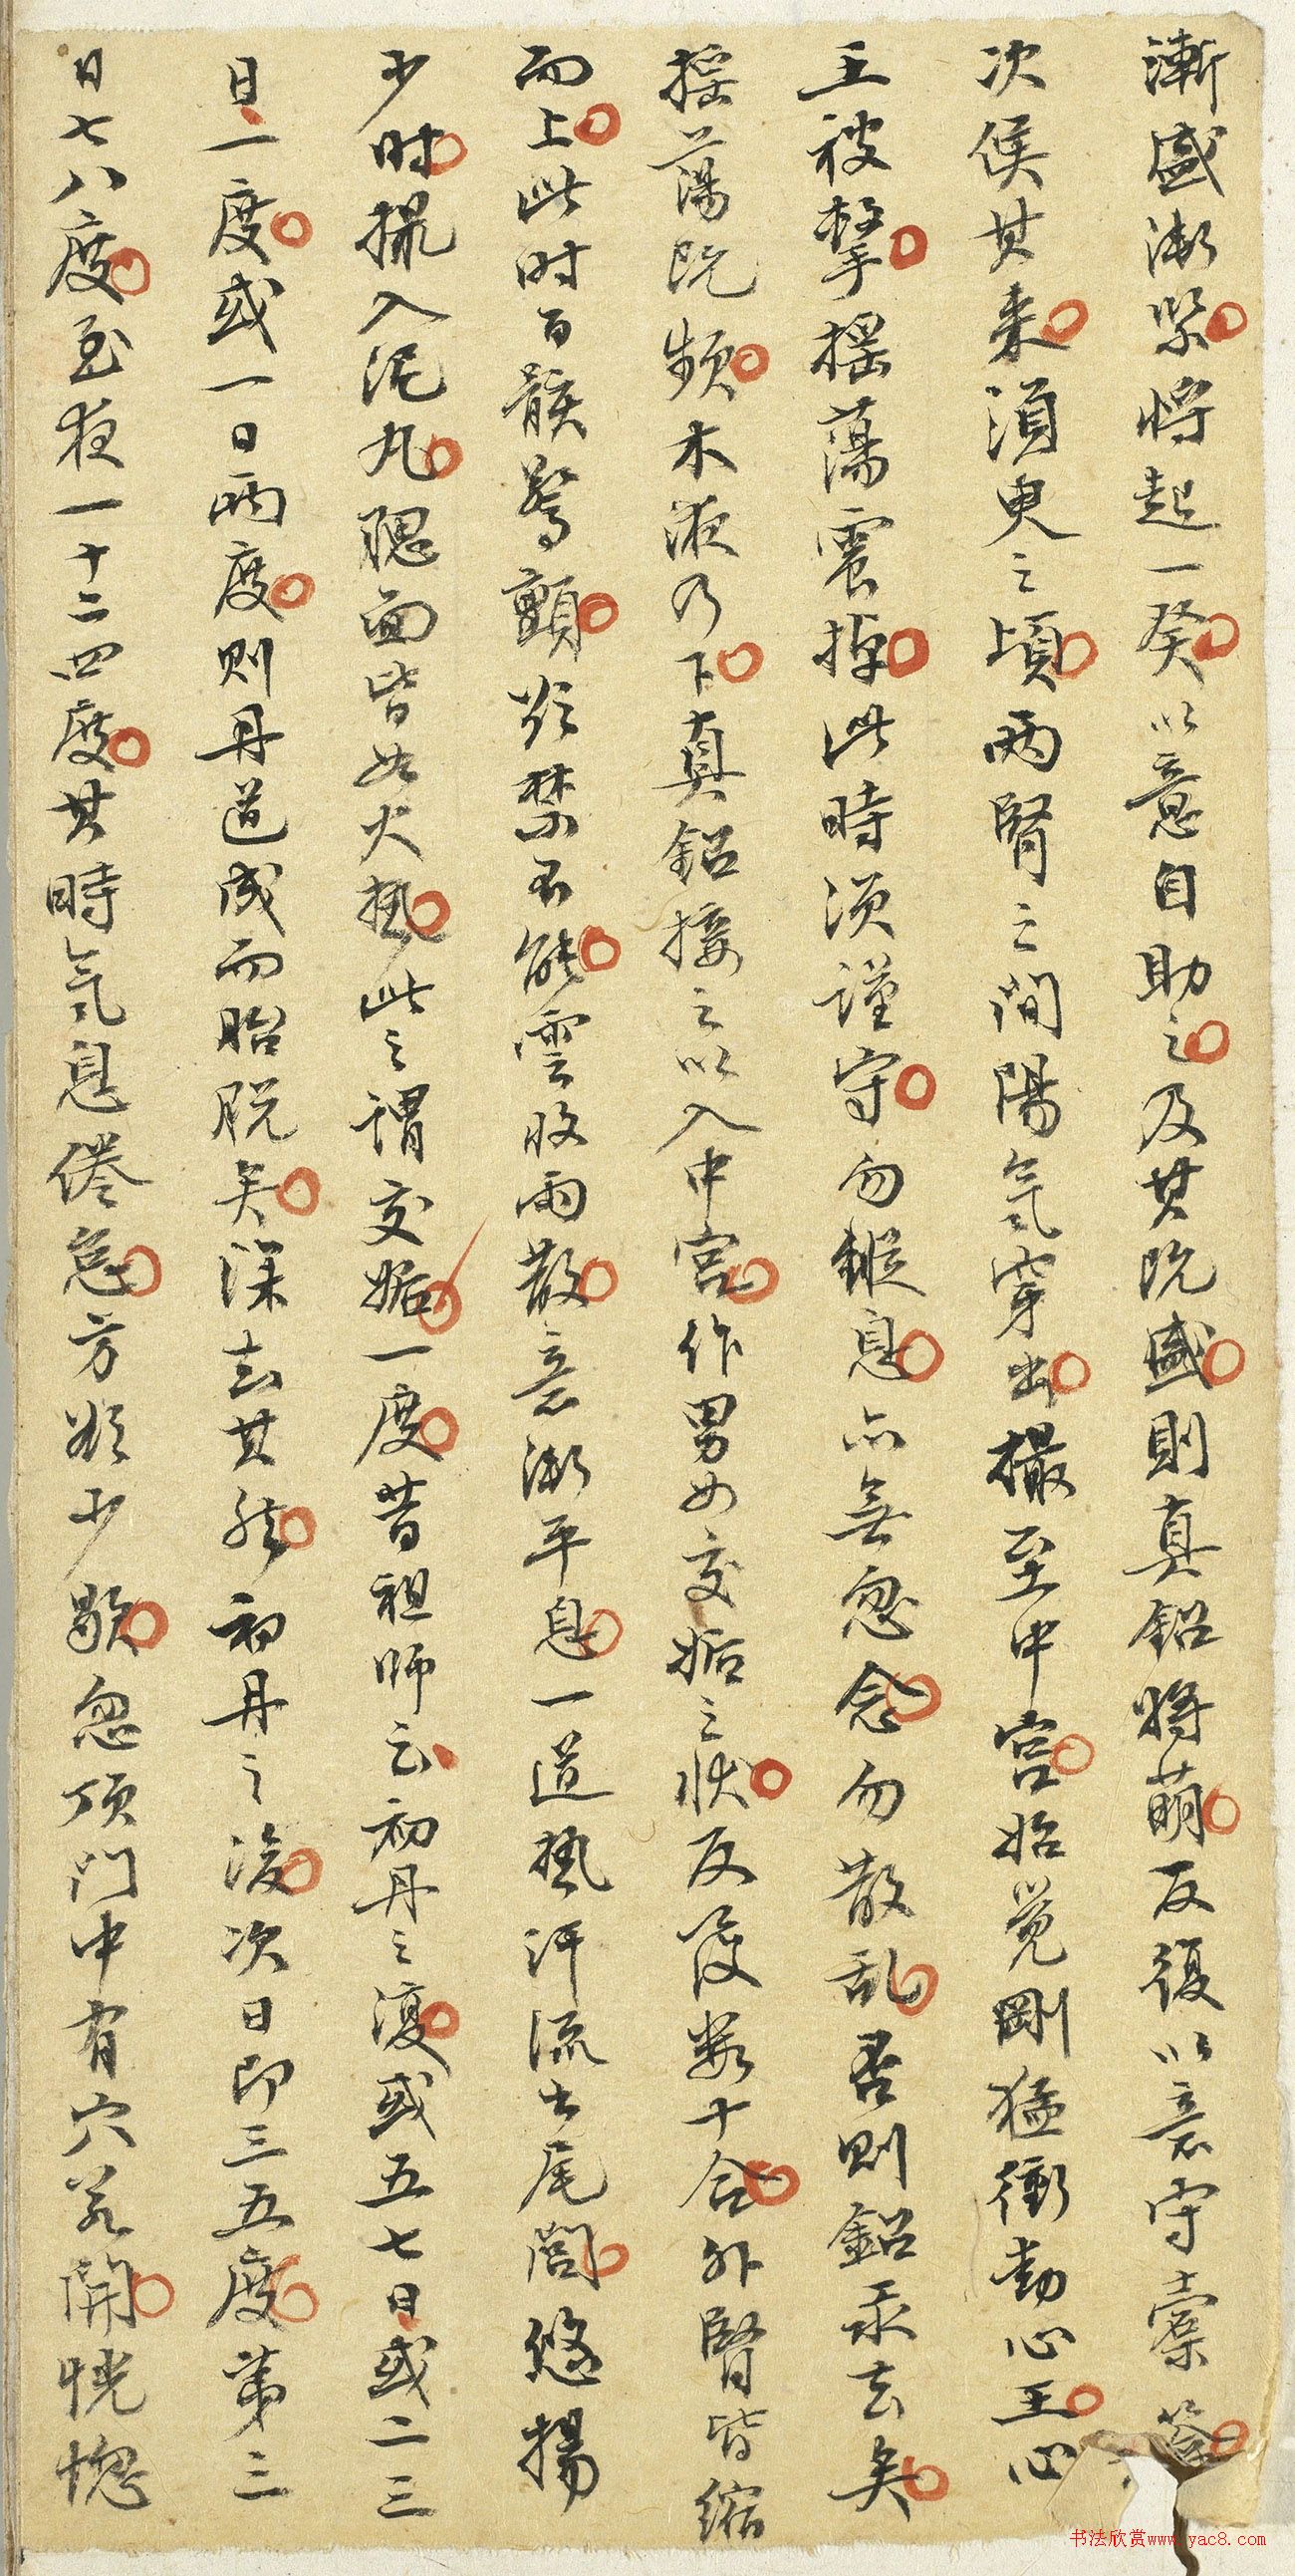 漸盛漸緊将起一癸以意自助之及其既盛則真鉛将萌反復以意守橐籥
次侯其来湏臾之頃兩腎之間陽氣穿出撮至中宫始覺剛猛衝動心王心
王被擊摇蕩震掉此時湏謹守勿縱息亦無忽念勿散乱否則鉛汞去矣
摇蕩既頻木液乃下真鉛接之以入中宫作男女交姤之状反復数十合外腎皆縮
而上此时百骸驚顫欲禁不能雲收雨散意漸平息一道热汗流出尾閭悠揚
少时撮入泥丸腮面皆如火热此之謂交姤一度昔祖師云初丹之後或五七日或二三
日一度或一日两度則丹道成而胎脱矣深去其然初丹之後次日即三五度第三
日七八度至夜一十二四度其時氣息倦怠方欲少歇忽頂門中有穴若開恍惚
书法欣赏www.yac8.com